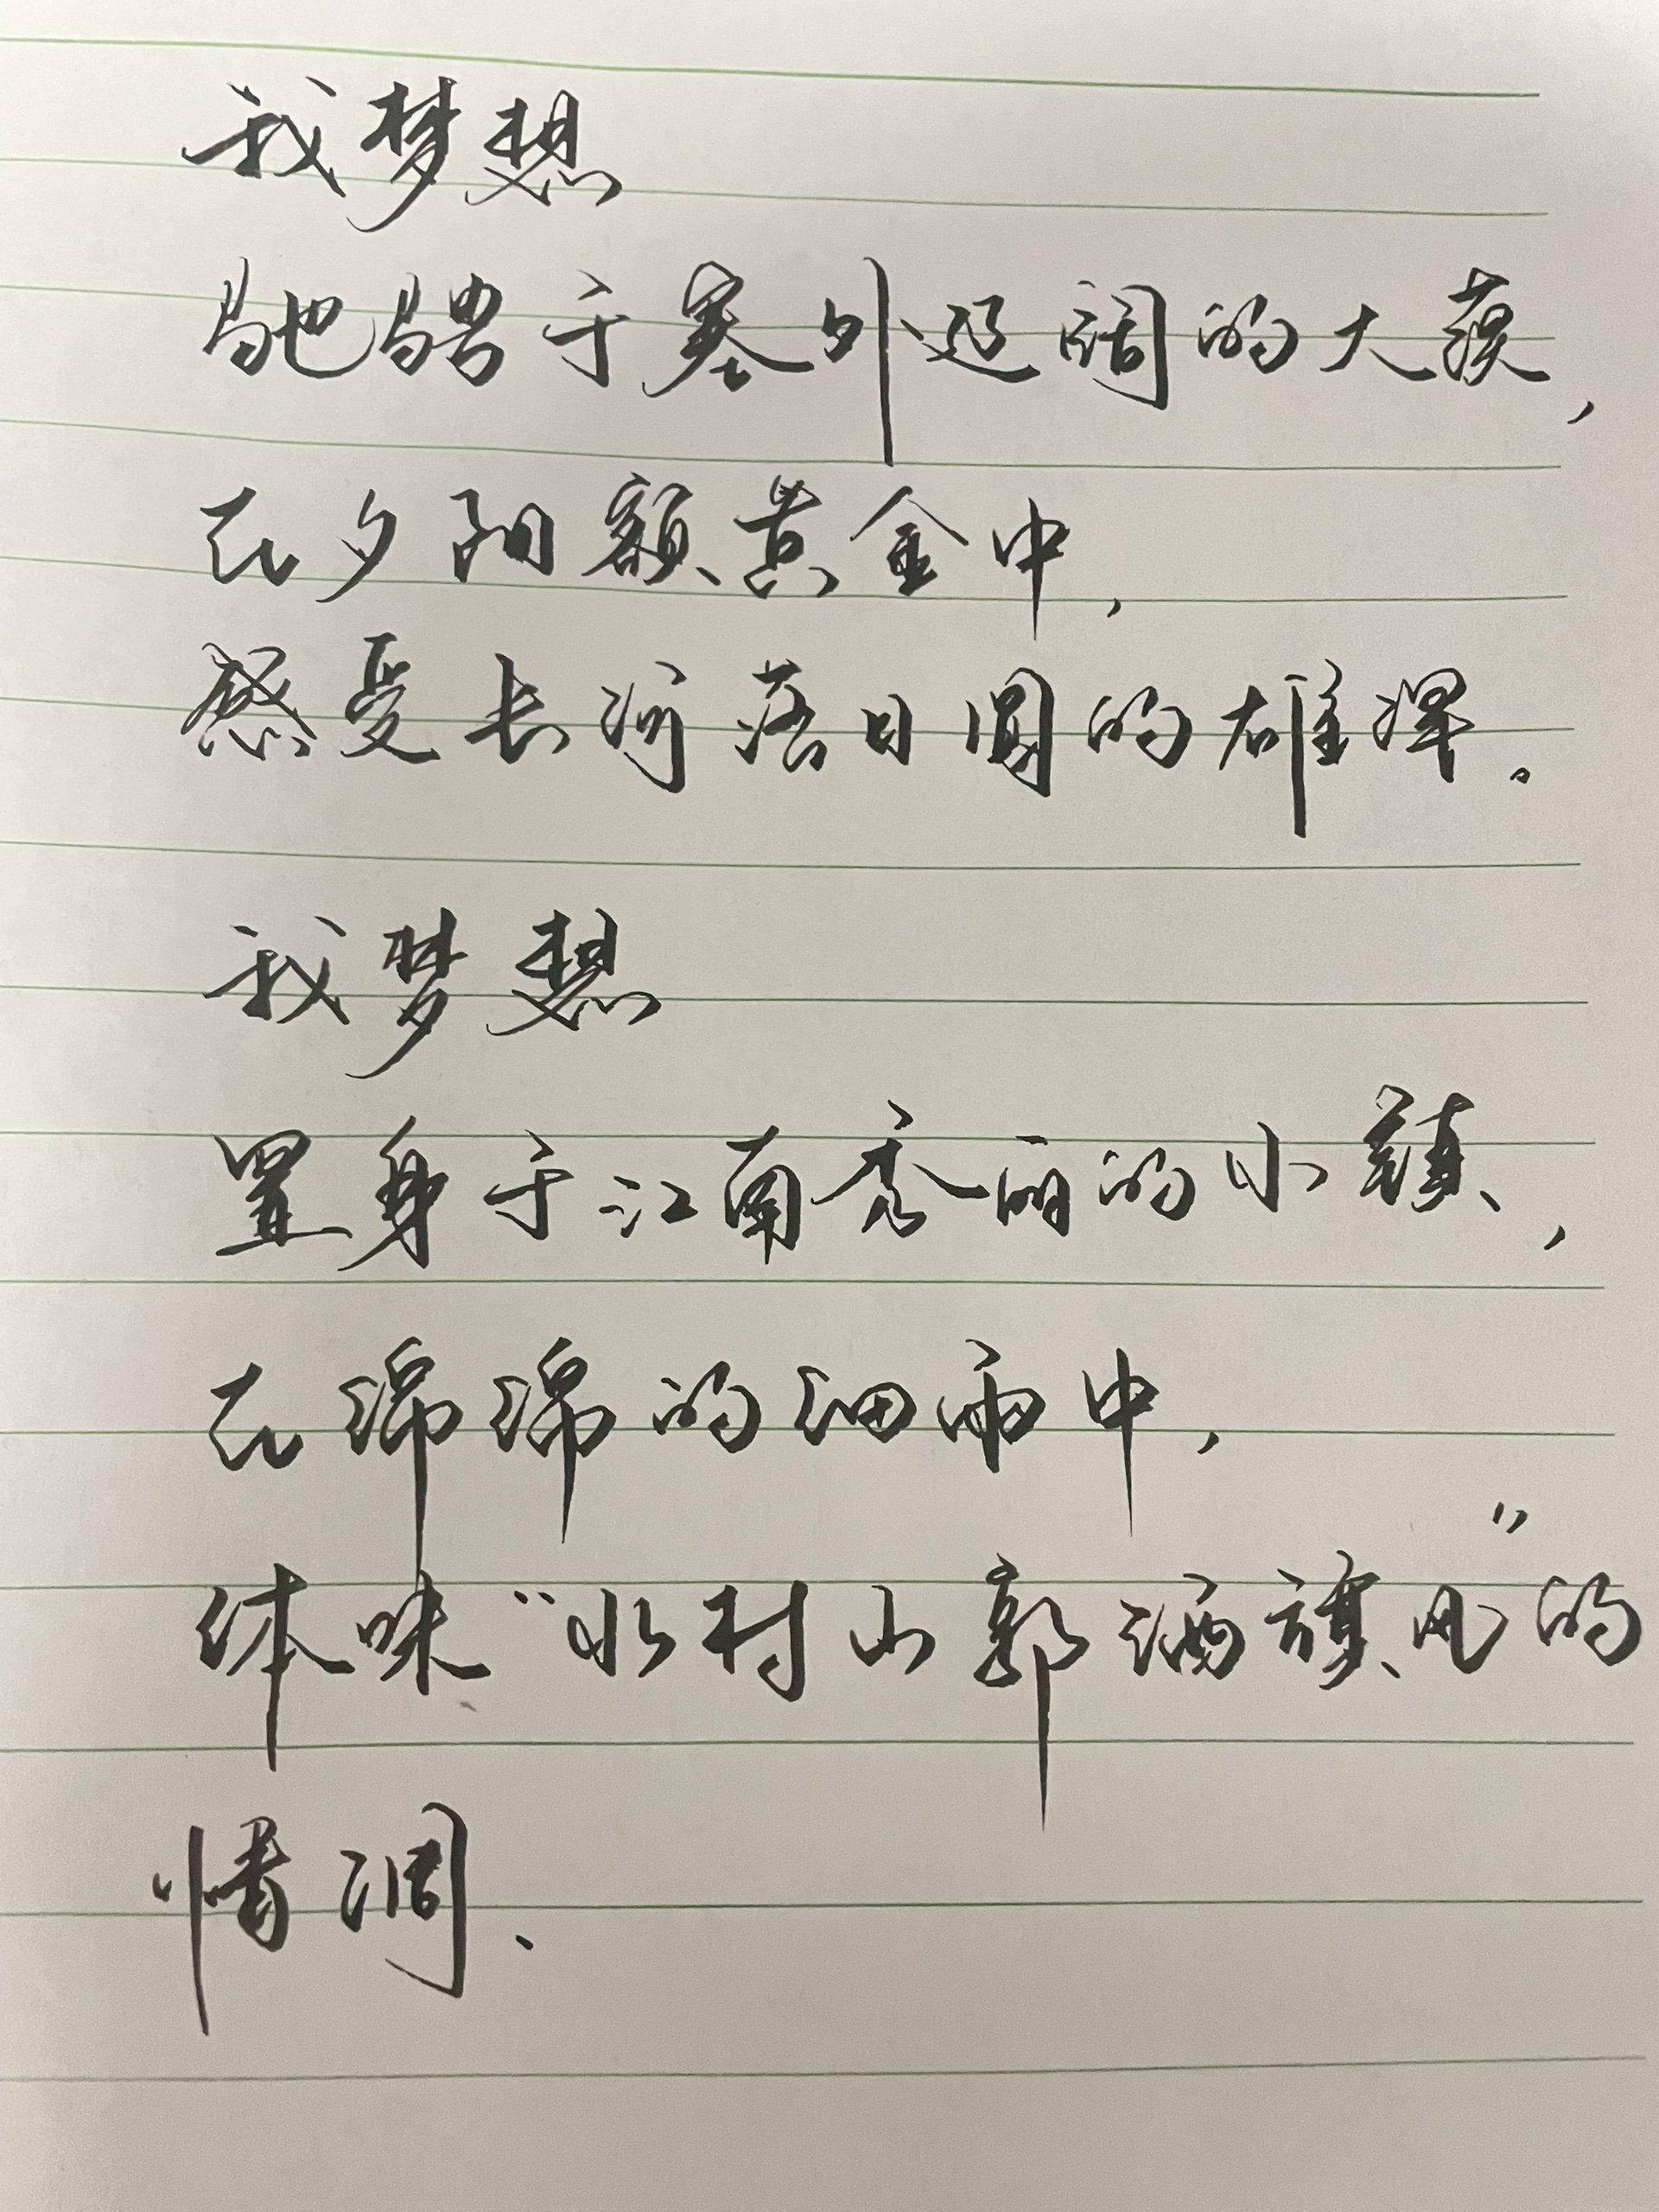 我梦想
驰骋于塞外辽阔的大漠，
在夕阳额黄金中，
感受长河落日圆的雄浑。
我梦想
置身于江南秀丽的小镇，
在绵绵的细雨中，
体味“水村山郭酒旗风”的
情调、